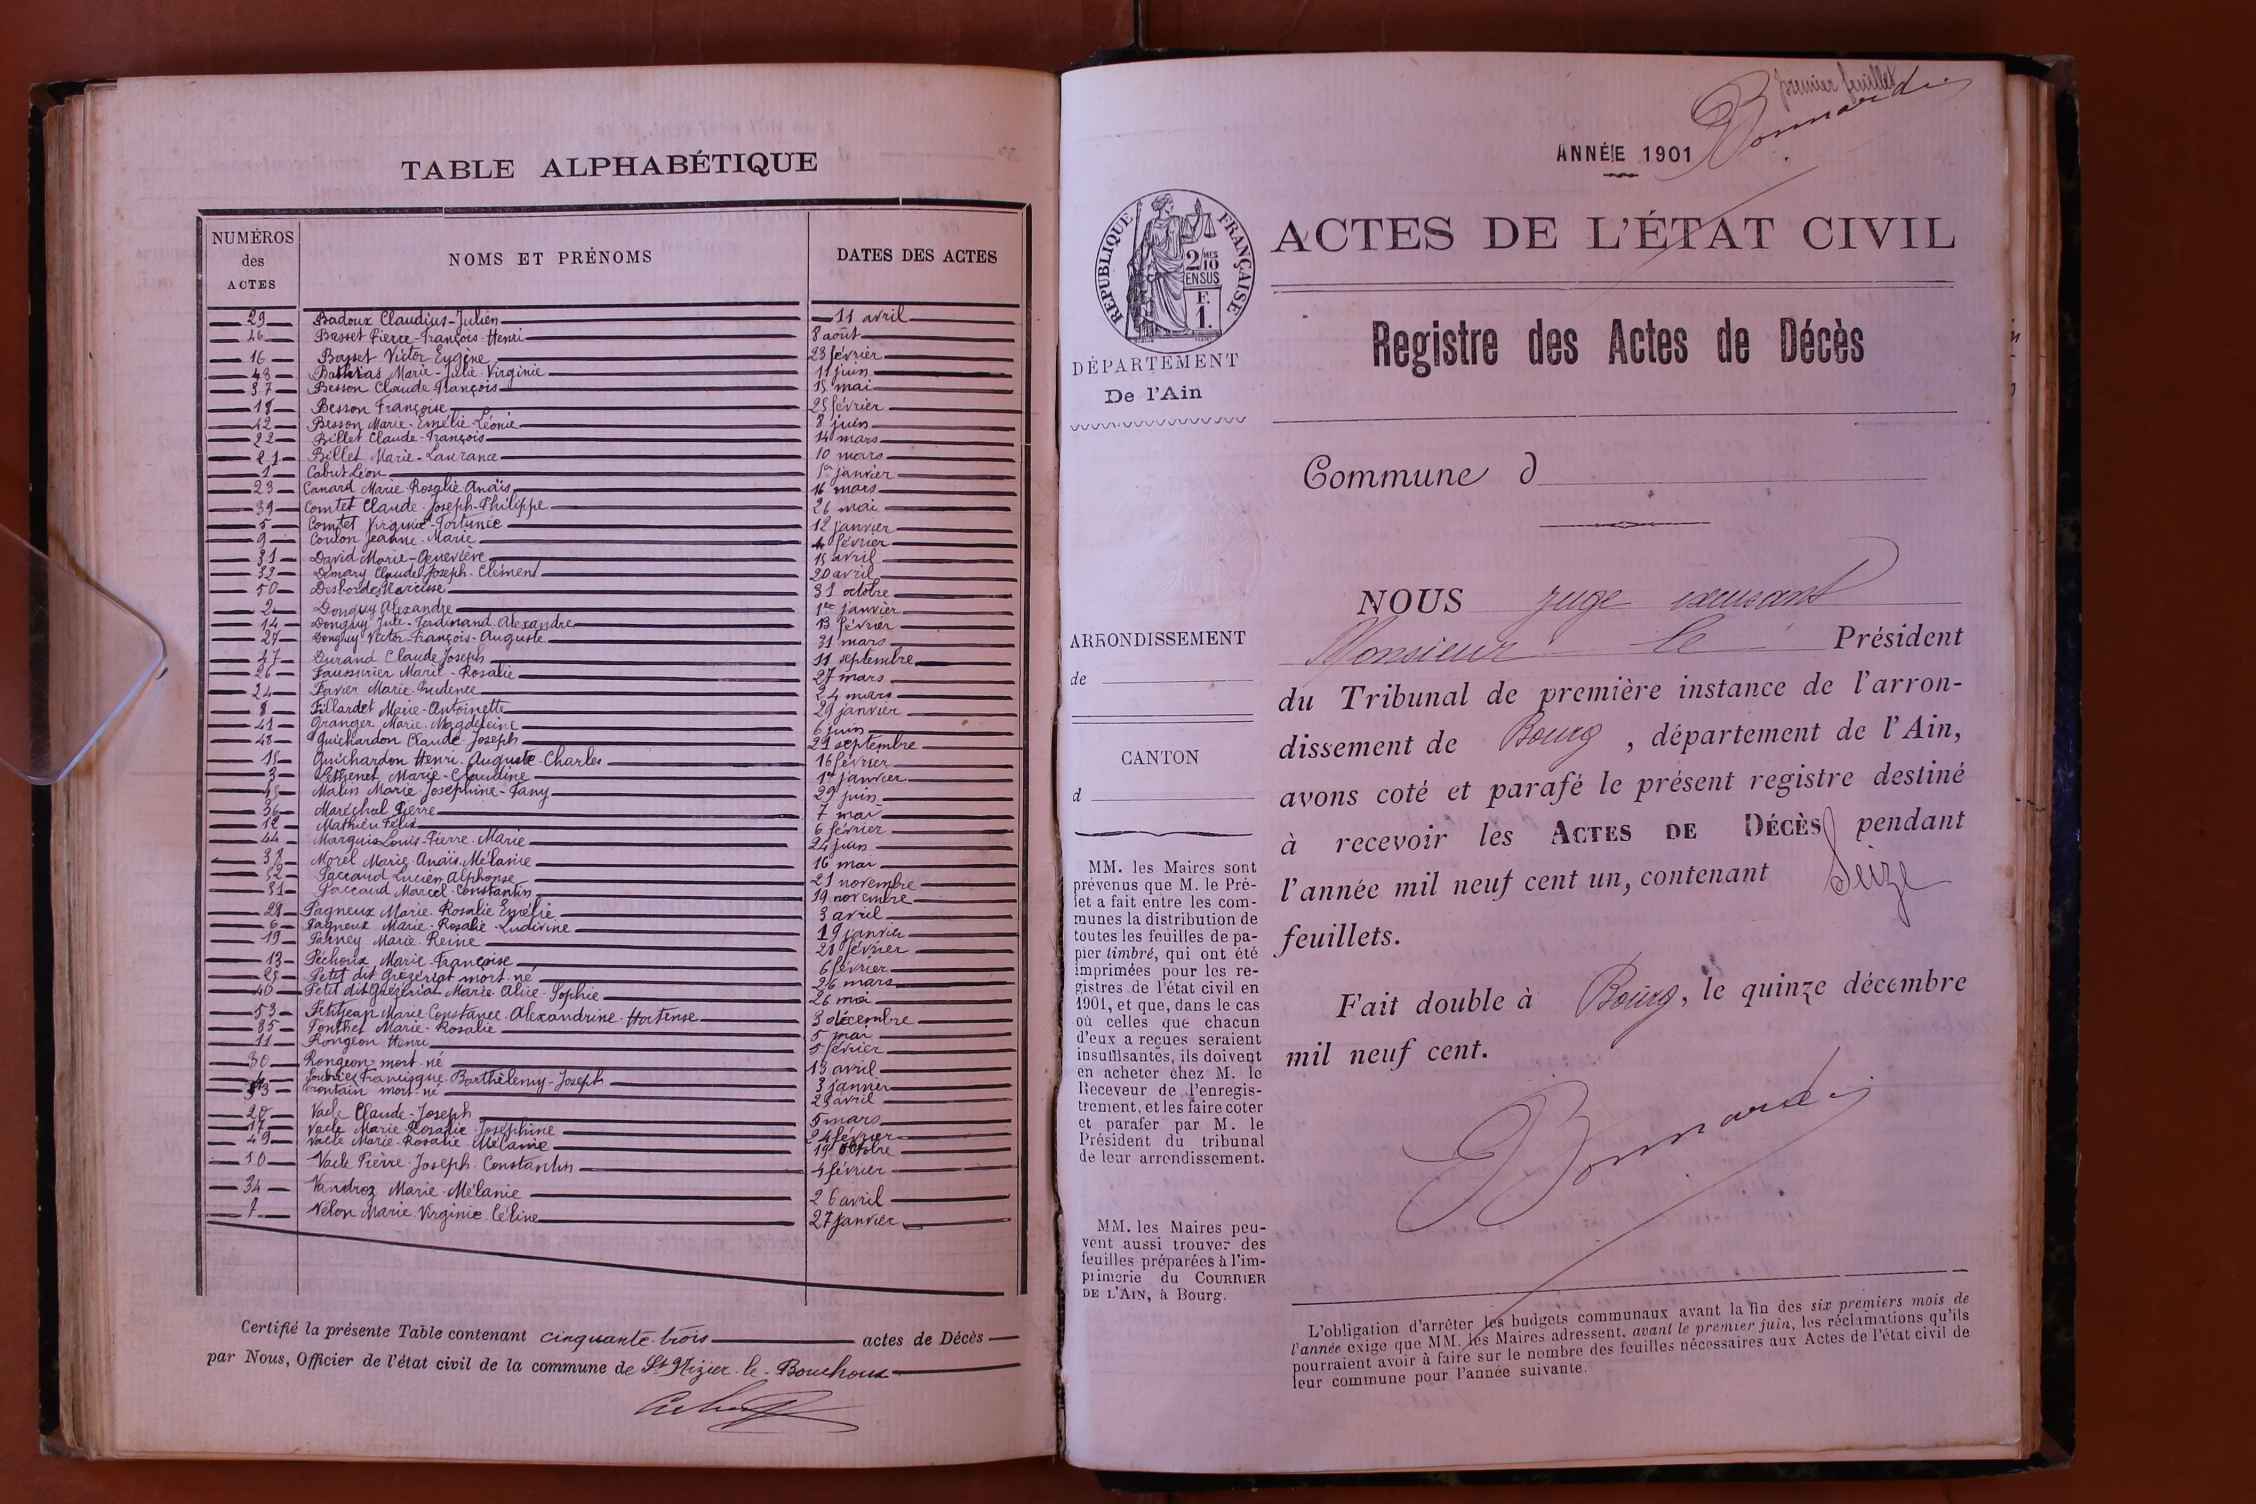 TABLE ALPHABÉTIQUE
NUMÉROS des ACTES
NOMS ET PRÉNOMS
DATES DES ACTES
29 Badoux Claudius-Julien 11 avril
46 Basset Pierre-François-Henri 8 août
16 Basset Victor Eugène 23 février
43 Marie-Julie-Virginie 11 juin
37 Besson Claude François 15 mai
18 Besson Françoise 25 février
42 Besson Marie-Emélie-Léonie 8 juin
22 Billet Claude-François 14 mars
21 Billet Marie-Laurance 10 mars
1 Cabut Léon 1er janvier
23 Canard Marie-Rosalie-Anaïs 16 mars
39 Comtet Claude-Joseph-Philippe 26 mai
5 Comtet Virginie-Fortunée 12 janvier
9 Coulon Jeanne-Marie 4 février
31 David Marie-Geneviève 15 avril
32 Demary Claude Joseph-Clément 20 avril
50 Desbordes Narcisse 31 octobre
2 Donguy Alexandre 1er janvier
14 Donguy Jule-Ferdinand-Alexandre 13 février
27 Donguy Victor-François-Auguste 31 mars
47 Durand Claude Joseph 11 septembre
26 Faussurier Marie-Rosalie 27 mars
24 Favier Marie Prudence 24 mars
8 Fillardet Marie-Antoinette 29 janvier
41 Granger Marie-Magdeleine 6 juin
48 Guichardon Claude-Joseph 21 septembre
15 Guichardon Henri-Auguste-Charles 16 février
3 Pethenet Marie-Claudine 1er janvier
45 Malin Marie Joséphine-Fany 29 juin
36 Maréchal Pierre 7 mai
12 Mathieu Félix 6 février
44 Marquis Louis-Pierre-Marie 24 juin
38 Morel Marie-Anaïs-Mélanie 16 mai
52 Paccaud Lucien Alphonse 21 novembre
51 Paccaud Marcel-Constantin 19 novembre
28 Pagneux Marie-Rosalie Emélie 3 avril
6 Pagneux Marie-Rosalie-Ludivine 19 janvier
19 Panney Marie-Reine 28 février
13 Péchoux Marie-Françoise 6 février
25 Petit dit Grézériat mort-né 26 mars
40 Petit dit Grézériat Marie-Alice-Sophie 26 mai
53 Petitjean Marie Constance-Alexandrine-Hortense 3 décembre
35 Ponthet Marie-Rosalie 5 mai
11 Rongeon Henri 5 février
30 Rongeon mort-né 13 avril
4 Francisque-Barthélemy-Joseph 3 janvier
33 mort-né 23 avril
20 Vacle Claude-Joseph 5 mars
17 Vacle Marie-Rosalie-Joséphine 24 février
49 Vacle Marie-Rosalie-Mélanie 19 octobre
10 Vacle Pierre-Joseph-Constantin 4 février
34 Vandroz Marie-Mélanie 26 avril
7 Velon Marie-Virginie-Céline 27 janvier
Certifié la présente Table contenant cinquante-trois actes de Décès
par Nous, Officier de l'état civil de la commune de St Nizier-le-Bouchoux
premier feuillet
Bonnardi
ANNÉE 1901
RÉPUBLIQUE FRANÇAISE
2 MES 10 EN SUS
F. 1.
ACTES DE L'ÉTAT CIVIL
Registre des Actes de Décès
DÉPARTEMENT
De l'Ain
Commune d
ARRONDISSEMENT
de
CANTON
d
MM. les Maires sont
prévenus que M. le Pré-
fet a fait entre les com-
munes la distribution de
toutes les feuilles de pa-
pier timbré, qui ont été
imprimées pour les re-
gistres de l'état civil en
1901, et que, dans le cas
où celles que chacun
d'eux a reçues seraient
insuffisantes, ils doivent
en acheter chez M. le
Receveur de l'enregis-
trement, et les faire coter
et parafer par M. le
Président du tribunal
de leur arrondissement.
MM. les Maires peu-
vent aussi trouver des
feuilles préparées à l'im-
primerie du COURRIER
DE L'AIN, à Bourg.
NOUS juge exerçant
Monsieur le Président
du Tribunal de première instance de l'arron-
dissement de Bourg, département de l'Ain,
avons coté et parafé le présent registre destiné
à recevoir les ACTES DE DÉCÈS pendant
l'année mil neuf cent un, contenant Seize
feuillets.
Fait double à Bourg, le quinze décembre
mil neuf cent.
Bonnardi
L'obligation d'arrêter les budgets communaux avant la fin des six premiers mois de
l'année exige que MM. les Maires adressent, avant le premier juin, les réclamations qu'ils
pourraient avoir à faire sur le nombre des feuilles nécessaires aux Actes de l'état civil de
leur commune pour l'année suivante.